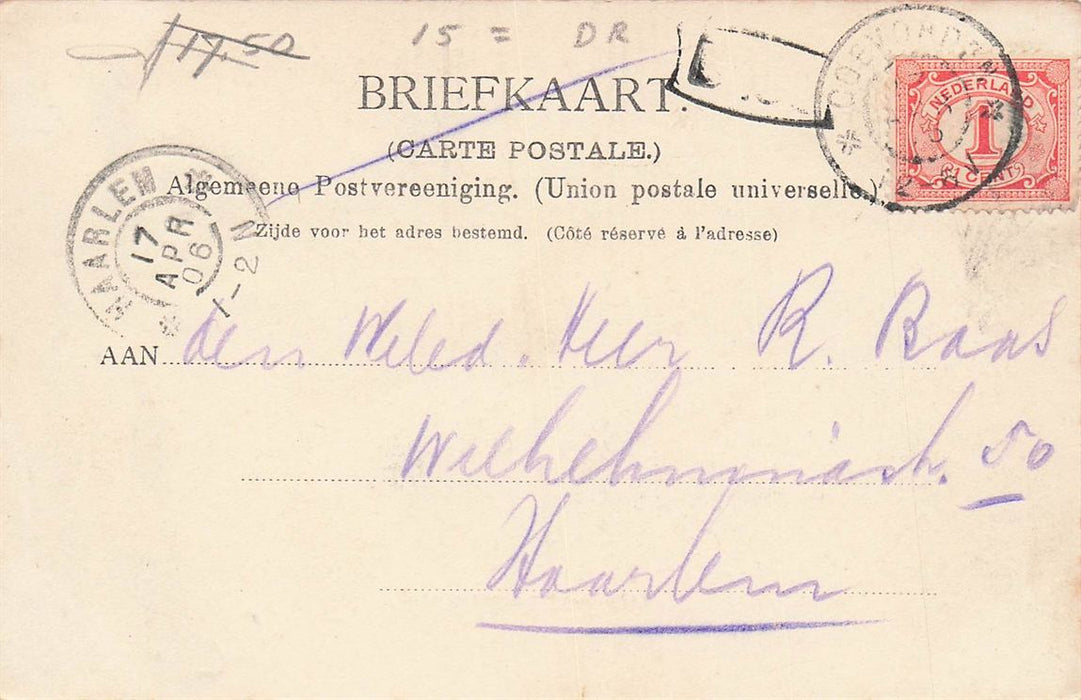 17,50
15 = DR
BRIEFKAART.
(CARTE POSTALE.)
Algemeene Postvereeniging. (Union postale universelle.)
Zijde voor het adres bestemd. (Côté réservé à l'adresse)
COEVORDEN
NEDERLAND
1
CENT
HAARLEM
17
APR
06
1-2 N
AAN den Weled. Heer R. Raas
Wilhelminastr. 50
Haarlem